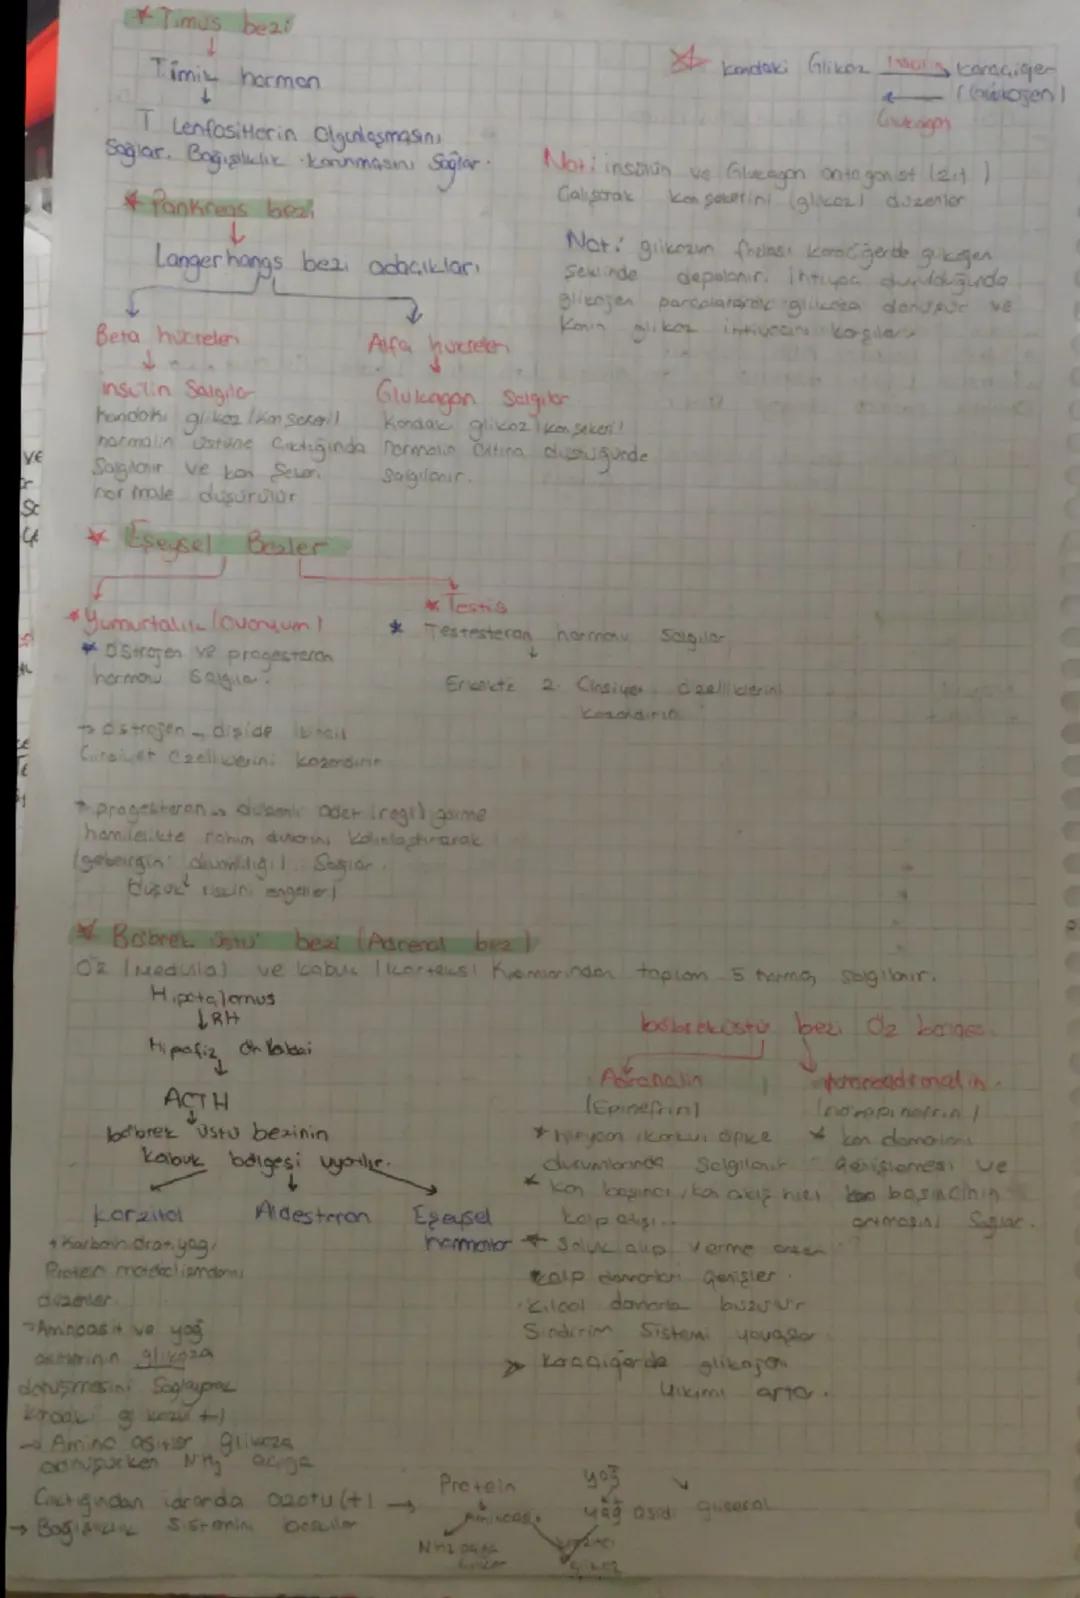 * Timus bezi
Timik hormon
T Lenfositlerin Olgunlaşmasını
Sağlar. Bağışıklık korunmasını Sağlar.
* Kandaki Glikoz İnsülin Karaciğer
(Glikojen)
Glukagon
Not: insülin ve Glukagon antagonist (zıt)
Çalışarak kan şekerini (glikoz) düzenler
Not: glikozun fazlası karaciğerde glikojen
şeklinde depolanır. ihtiyaç duyulduğunda
glikojen parçalanarak glikoza dönüşür ve
Kanın glikoz ihtiyacını karşılar
* Pankreas bezi
Langerhangs bezi adacıkları
Beta hücreleri
insülin Salgılar
kandaki glikoz (kan şekeri)
normalin üstüne Çıktığında
Salgılanır ve kan Şekeri
normale düşürülür
Alfa hücreleri
Glukagon Salgılar
Kandaki glikoz (kan şekeri)
normalin altına düştüğünde
salgılanır.
* Eşeysel Bezler
* Yumurtalık (ovaryum)
* Östrojen ve progesteron
hormonu Salgılar.
→ östrojen → dişide ikincil
Cinsiyet özelliklerini kazandırır
→ progesteron → düzenli adet (regl) görme
hamilelikte rahim duvarını kalınlaştırarak
(gebeliğin devamlılığı) Sağlar.
düşük riskini engeller)
* Testis
* Testesteron hormonu Salgılar
Erkekte 2. Cinsiyet özelliklerini
kazandırır
* Böbrek üstü bezi (Adrenal bez)
Öz (Medulla) ve kabuk (korteks) kısımlarından toplam 5 hormon salgılanır.
Hipotalamus
↓ RH
Hipofiz ön lobu
ACTH
böbrek üstü bezinin
Kabuk bölgesi uyarılır.
Korzitol
Aldesteron
Eşeysel
hormonlar
→ Karbonhidrat, yağ,
Protein metabolizmasını
düzenler.
→ Aminoasit ve yağ
asitlerinin glikoza
dönüşmesini Sağlayarak
→ Amino asitler glikoza
dönüşürken NH3 açığa
Çıktığından idrarda azotu (+) →
→ Bağışıklık Sistemini baskılar
böbreküstü bezi Öz bölgesi
Adrenalin
(Epinefrin)
* Heyecan, korku, öfke
durumlarında Salgılanır
* Kan basıncı, kan akış hızı
kalp atışı..
* Soluk alıp verme artar
kalp damarları genişler.
Kılcal damarlar büzülür
Sindirim Sistemi yavaşlar
> Karaciğerde glikojen
Yıkımı artar.
Noradrenalin.
(norepinefrin)
* kan damarların
Genişlemesi ve
kan basıncının
artmasını Sağlar.
Protein
Aminoasit
yağ
yağ asidi gliserol
glikoz